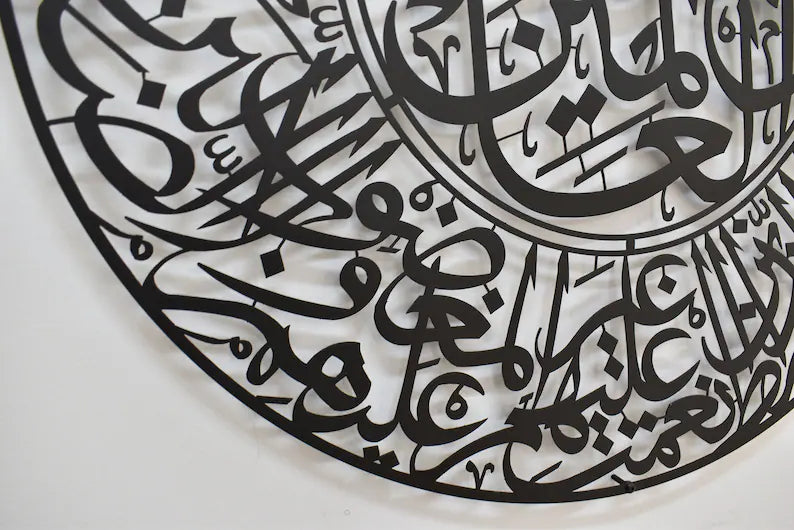 العالمين
الذين انعمت عليهم غير المغضوب عليهم ولا الضالين